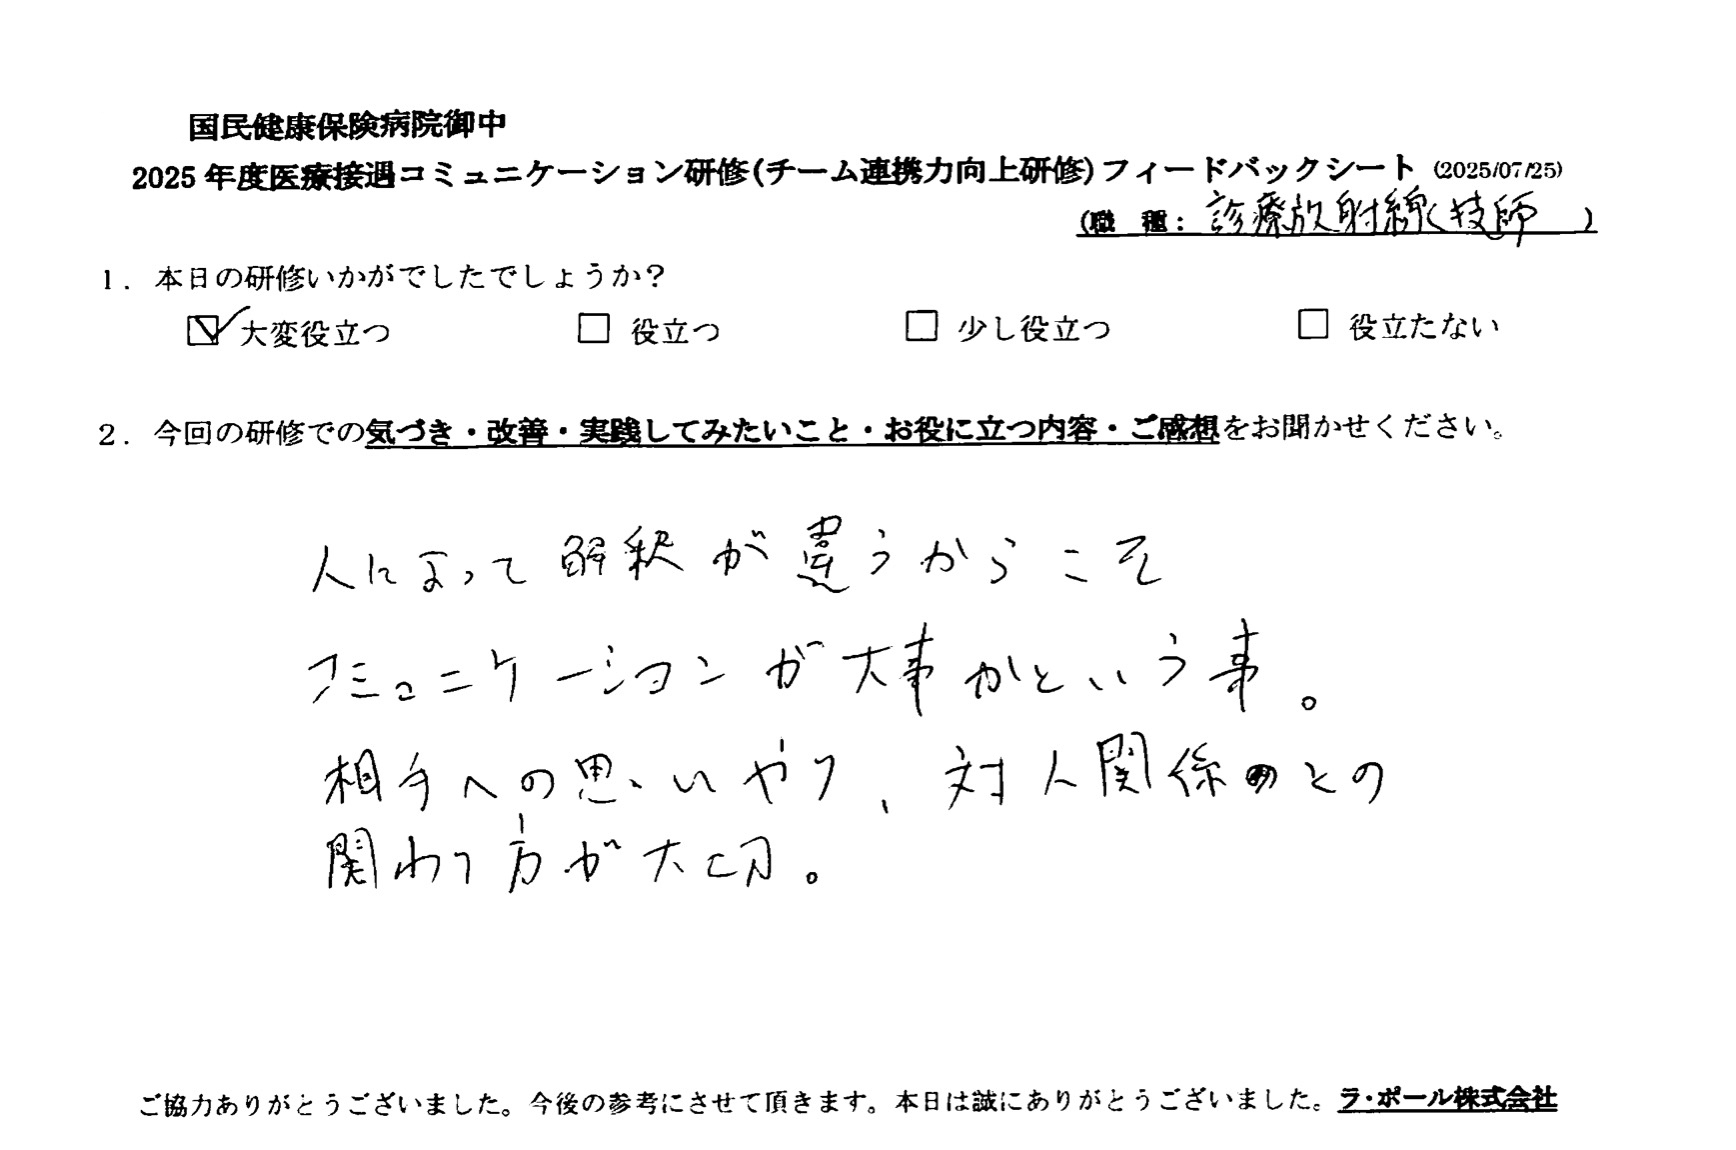 国民健康保険病院御中
2025年度医療接遇コミュニケーション研修(チーム連携力向上研修)フィードバックシート (2025/07/25)
(職 種: 診療放射線技師 )
1. 本日の研修いかがでしたでしょうか?
☑大変役立つ □ 役立つ □ 少し役立つ □ 役立たない
2. 今回の研修での気づき・改善・実践してみたいこと・お役に立つ内容・ご感想をお聞かせください。
人によって解釈が違うからこそ
コミュニケーションが大事かという事。
相手への思いやり、対人関係のとの
関わり方が大切。
ご協力ありがとうございました。今後の参考にさせて頂きます。本日は誠にありがとうございました。ラ・ポール株式会社